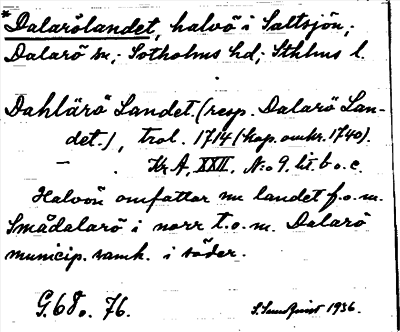 *Dalarölandet, halvö i Saltsjön;
Dalarö sn; Sotholms hd; Sthlms l.
Dahlärö Landet. (resp. Dalarö Lan-
det.), trol. 1714 (kop. omkr. 1740).
— Kr. A, XXII. N:o 9. lit. b o. c.
Halvön omfattar nu landet f.o.m.
Smådalarö i norr t.o.m. Dalarö
municip. samh. i söder.
G. 68 o. 76. S. Sundqvist 1936.